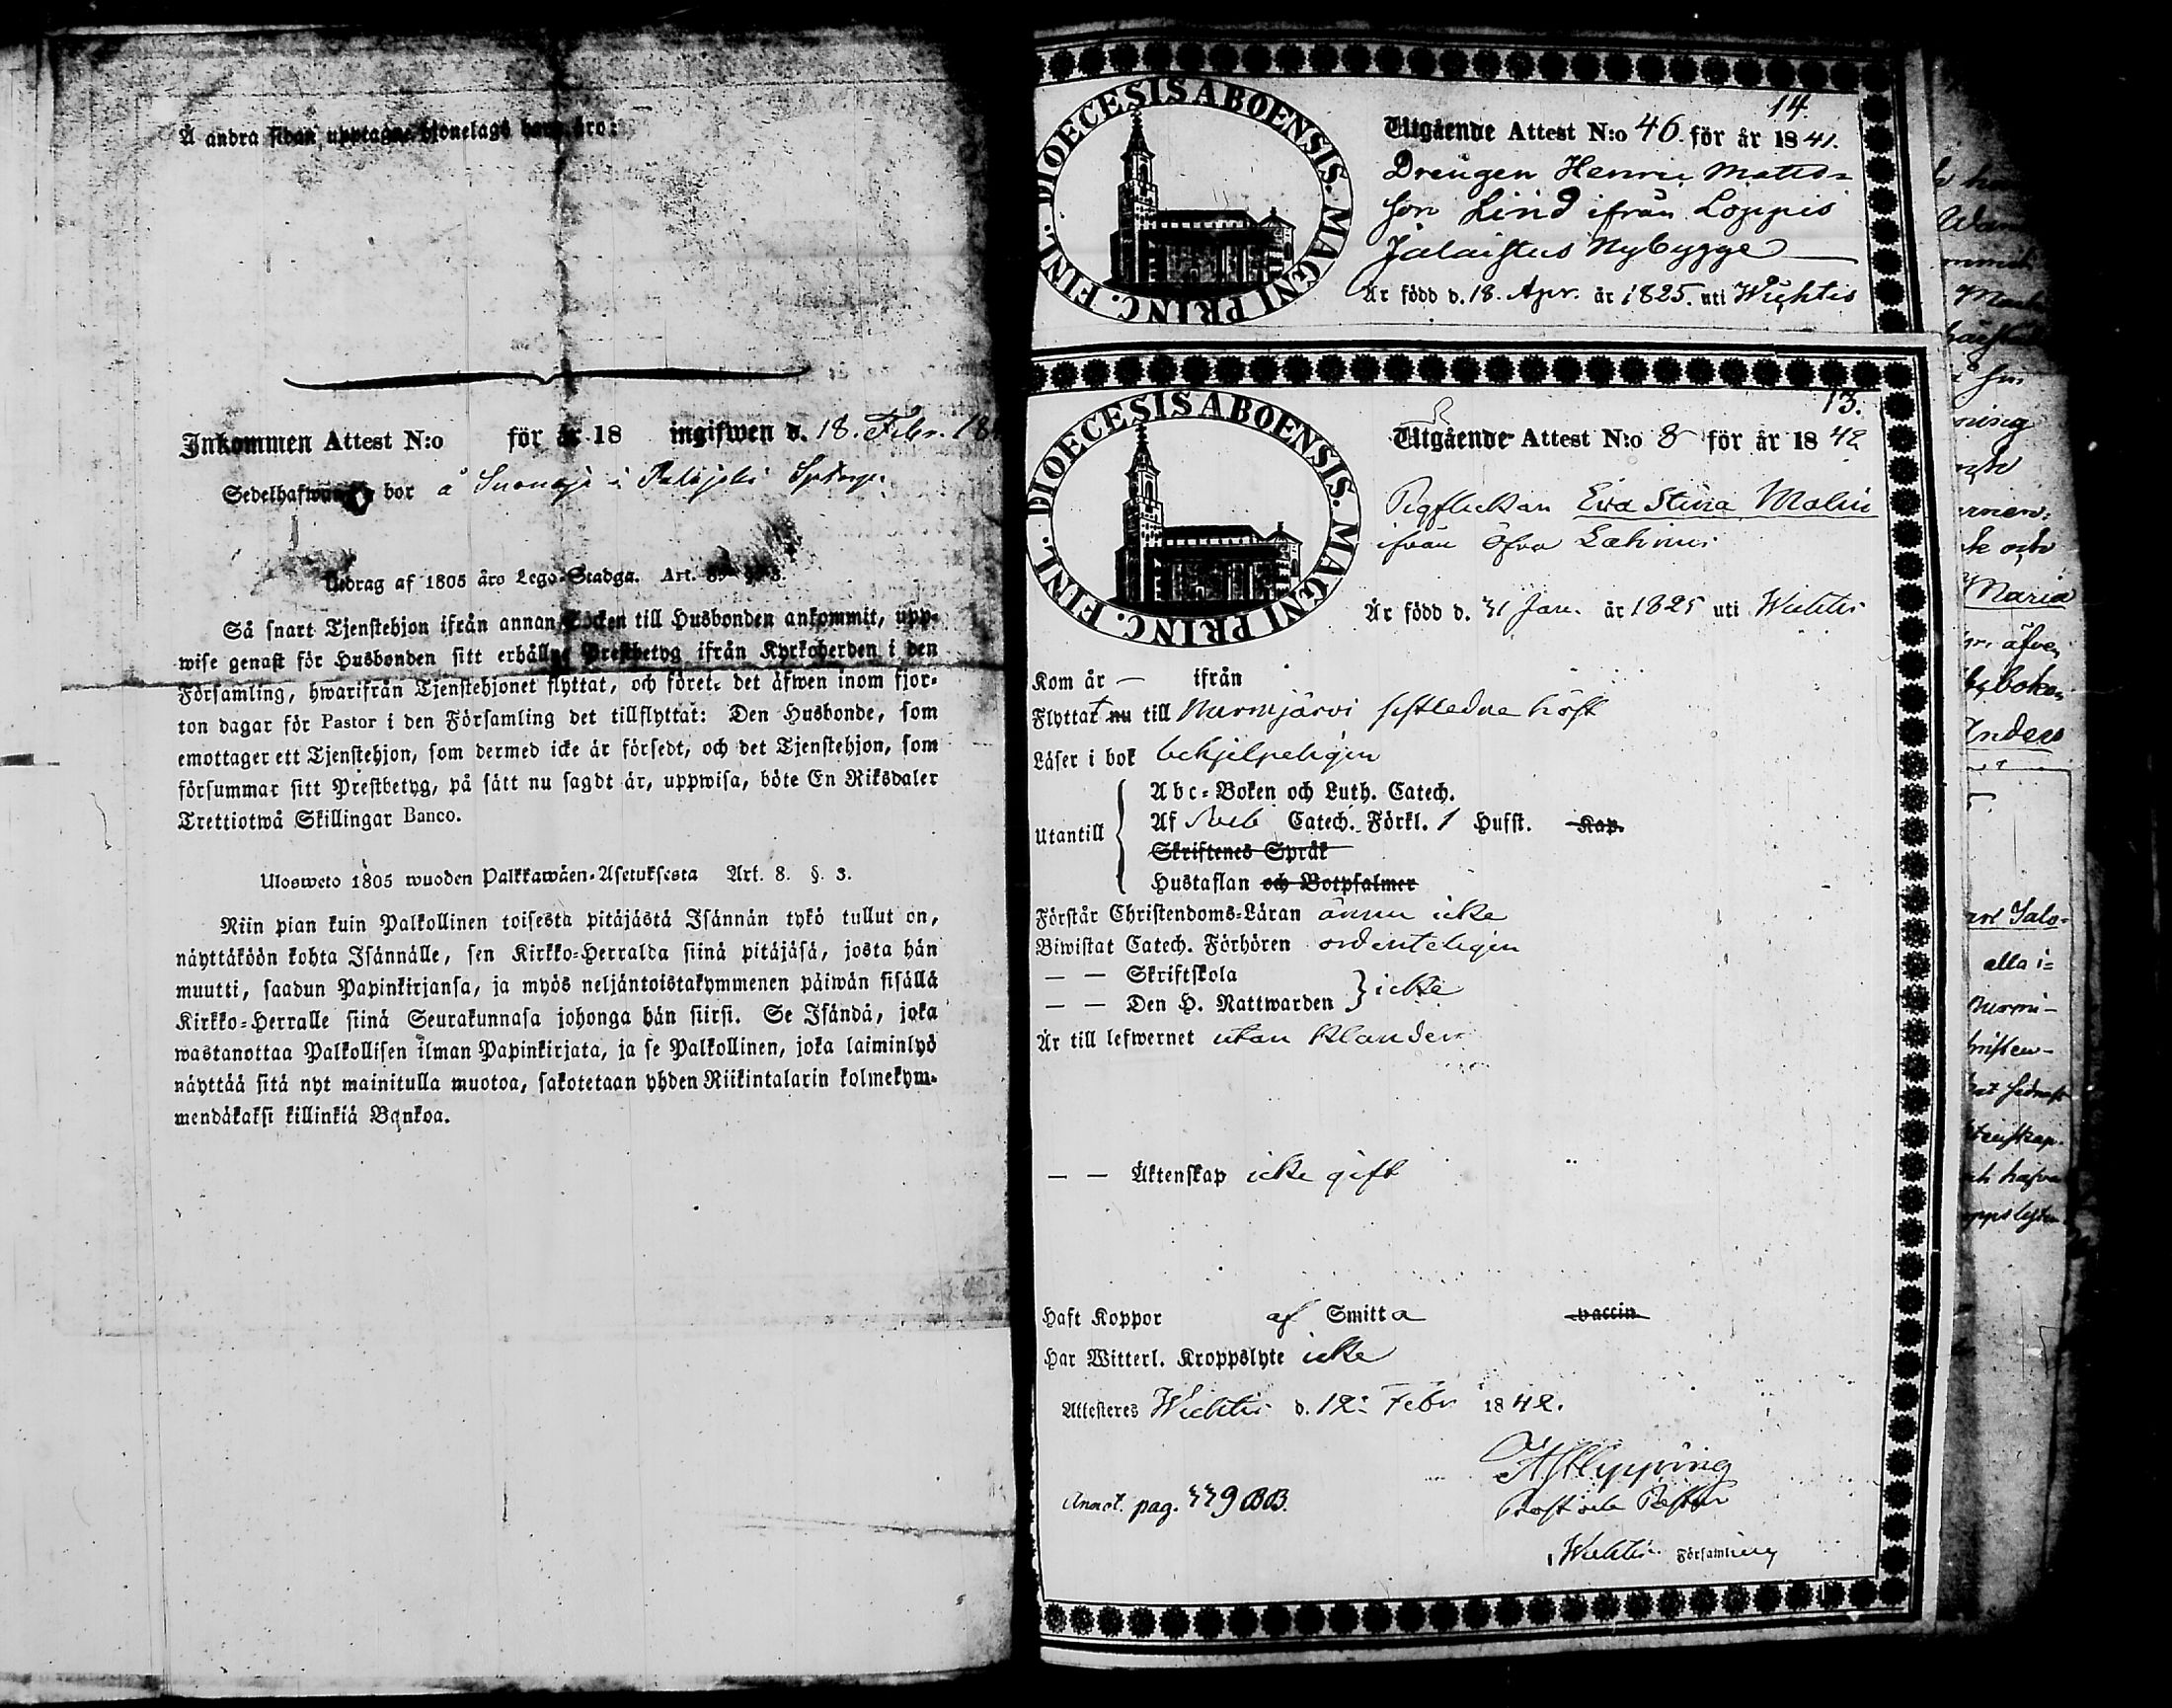 Å andra sidan upptagne hjonelags barn äro:
Inkommen Attest N:o för år 18 ingifwen d. 18. Febr. 18
Sedelhafwanden bor å i Palojoki
Utdrag af 1805 års Lego-Stadga. Art. 8. §. 3.
Så snart Tjenstehjon ifrån annan Socken till Husbonden ankommit, upp-
wise genast för Husbonden sitt erhållne Prestbetyg ifrån Kyrkoherden i den
Församling, hwarifrån Tjenstehjonet flyttat, och förete det äfwen inom fjor-
ton dagar för Pastor i den Församling det tillflyttat: Den Husbonde, som
emottager ett Tjenstehjon, som dermed icke är försedt, och det Tjenstehjon, som
försummar sitt Prestbetyg, på sätt nu sagdt är, uppwisa, böte En Riksdaler
Trettiotwå Skillingar Banco.
Ulosweto 1805 wuoden Palkkawäen-Asetuksesta Art. 8. §. 3.
Niin pian kuin Palkollinen toisesta pitäjästä Isännän tykö tullut on,
näyttäköön kohta Isännälle, sen Kirkko-Herralda siinä pitäjäsä, josta hän
muutti, saadun Papinkirjansa, ja myös neljäntoistakymmenen päiwän sisällä
Kirkko-Herralle siinä Seurakunnasa johonga hän siirsi. Se Isändä, joka
wastanottaa Palkollisen ilman Papinkirjata, ja se Palkollinen, joka laiminlyö
näyttää sitä nyt mainitulla muotoa, sakotetaan yhden Riikintalarin kolmekym-
mendäkaksi killinkiä Bankoa.
14.
DIOECESIS ABOENSIS. MAGNI PRINC. FINL.
Utgående Attest N:o 46. för år 1841.
Drengen Henric Matts-
son Lind ifrån Loppis
Jalaistus Nybygge
Är född d. 18. Apr. år 1825. uti Wichtis
13.
DIOECESIS ABOENSIS. MAGNI PRINC. FINL.
Utgående Attest N:o 8 för år 1842
Pigflickan Eva Stina Malin
ifrån Öfra Lahnus
Är född d. 31 Jan. år 1825 uti Wichtis
Kom år — ifrån
Flyttat nu till Nurmijärvi sistledne höst
Läser i bok behjelpeligen
Utantill
Abc-Boken och Luth. Catech.
Af Sveb Catech. Förkl. 1 Hufst. Kap.
Skriftenes Språk
Hustaflan och Botpsalmer
Förstår Christendoms-Läran ännu icke
Biwistat Catech. Förhören ordenteligen
— — Skriftskola
— — Den H. Nattwarden } icke
Är till lefwernet utan klander
— — Äktenskap icke gift
Haft Koppor af Smitta vaccin.
Har Witterl. Kroppslyte icke
Attesteres Wichtis d. 12: Febr 1842.
Hipping
Annot. pag. 339 BB.
Prost och Pastor
i Wichtis Församling
Maria
äfven
boken
Anders
alla i-
hafva